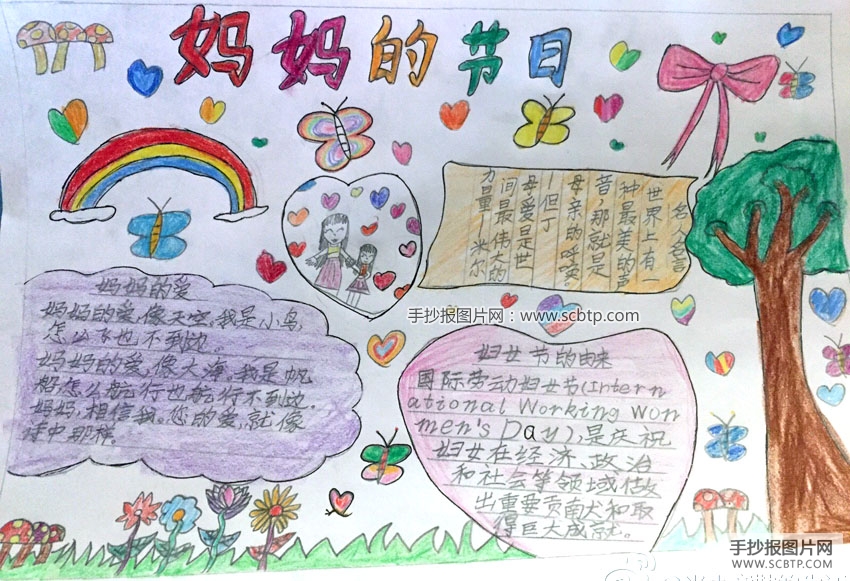 妈妈的节日
名人名言
世界上有一
种最美的声
音，那就是
母亲的呼唤。
—但丁
母爱是世
间最伟大的
力量—米尔
手抄报图片网：www.scbtp.com
妈妈的爱
妈妈的爱，像天空。我是小鸟，
怎么飞也不到边
妈妈的爱，像大海。我是帆
船怎么航行也航行不到边.
妈妈，相信我。您的爱，就像
诗中那样。
妇女节的由来
国际劳动妇女节(Intern
ational Working Won
men's Day)，是庆祝
妇女在经济、政治
和社会等领域做
出重要贡献和取
得巨大成就。
手抄报图片网
WWW.SCBTP.COM